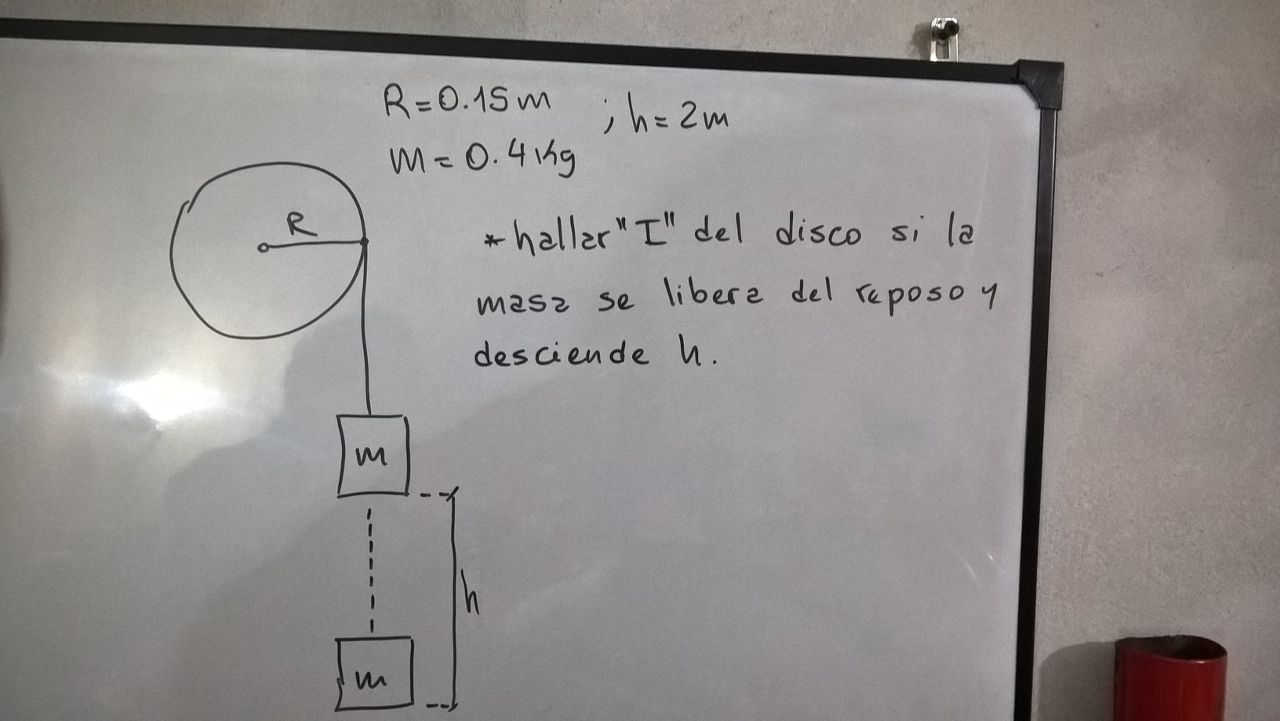 R=0.15m ; h=2m
m=0.4Kg
R
*hallar "I" del disco si la
masa se libera del reposo y
desciende h.
m
h
m